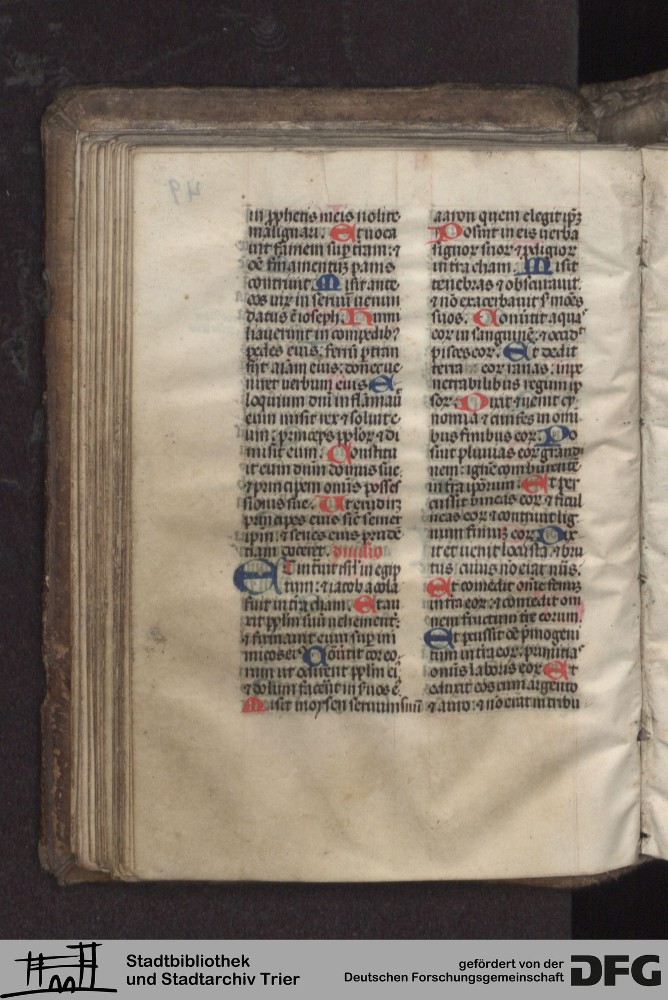 in p̄phetis meis nolite
malignari. Et uoca
uit famem sup̄ t̄ram: ⁊
oē firmamentuʒ panis
contriuit. Misit ante
eos uir̄ in seruū uenun
datus ē ioseph. Humi
liauerunt in compedibꝫ
pedes eius: ferrū p̄tran
sijt aīam eius: donec ue
niret uerbum eius. E
loquium dn̄i inflāmauit
eum misit rex ⁊ soluit e
um: princeps pp̄lor ⁊ di
misit eum. Constitu
it eum dnm domus sue
⁊ principem omīs posses
sionis sue. Ut erudiret
principes eius sic̄ semet
ipm: ⁊ senes eius prudē
tiam doceret. diuisio
Et intrauit isrl in egip
tum: ⁊ iacob accola
fuit in t̄ra cham. Et au
xit pp̄lm suū uehementer:
⁊ firmauit eum sup̄ ini
micos eiꝰ. Conuertit cor eo
rum ut odirent pp̄lm eiꝰ
⁊ dolum facerent in seruos eiꝰ
Misit moysen seruum suū
aaron quem elegit ip̄m
Posuit in eis uerba
signor suor ⁊ prodigior
in t̄ra cham. Misit
tenebras ⁊ obscurauit:
⁊ nō exacerbauit s̄mōes
suos. Conuertit aquas
eor in sanguinē: ⁊ occidit
pisces eor. Et dedit
terra eor ranas: in pe
netrabilibus regum ip
sor. Dixit ⁊ uenit cy
nomia ⁊ cinifes in omi
bus finibus eor. Po
suit pluuias eor grandi
nem: ignē comburentē
in t̄ra ip̄orum. Et per
cussit uineas eor ⁊ ficul
neas eor ⁊ contriuit lig
num finiuʒ eor. Dix
it et uenit locusta ⁊ bru
cus cuius nō erat nūs.
Et comedit om̄e fenuʒ
in t̄ra eor: ⁊ comedit om
nem fructum t̄re eorum.
Et pcussit oē p̄mogeni
tum in t̄ra eor: primitias
omīs laboris eor Et
eduxit eos cum argento
⁊ auro: ⁊ nō erat in tribu
Stadtbibliothek
und Stadtarchiv Trier
gefördert von der
Deutschen Forschungsgemeinschaft
DFG